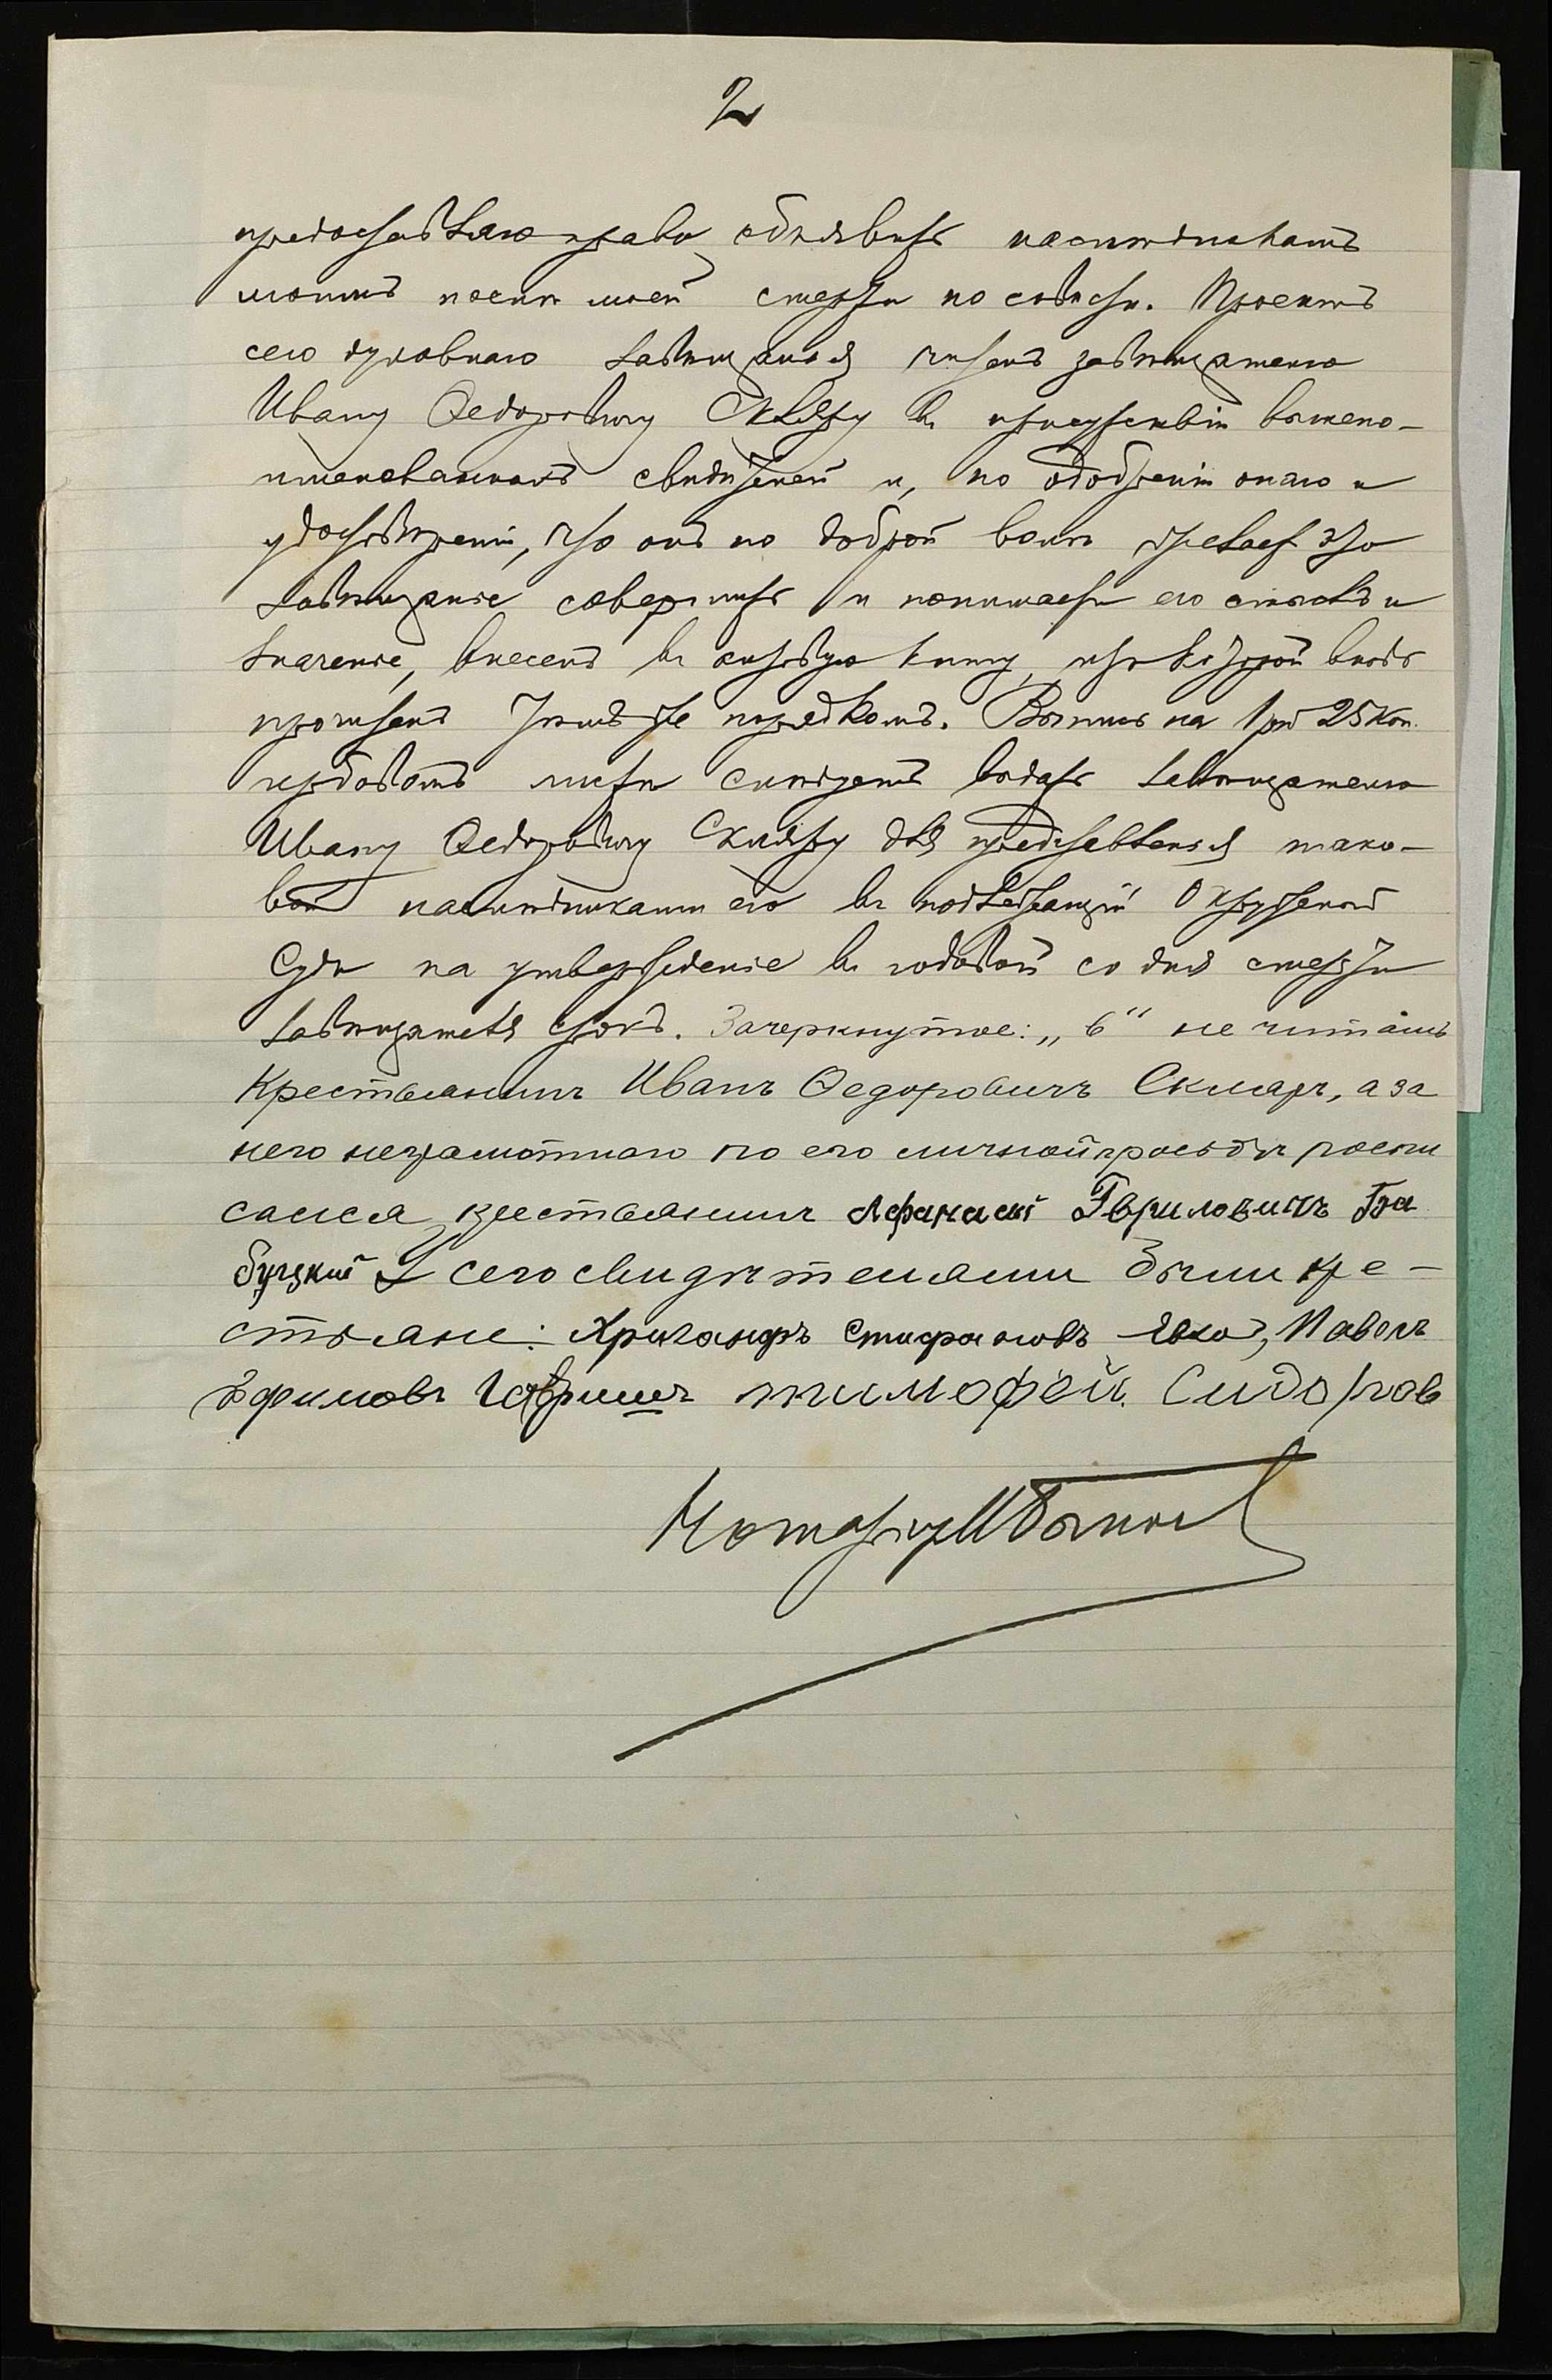 2
предоставляю право объявить наслѣдникамъ
моимъ послѣ моей смерти по совѣсти. Проектъ
сего духовнаго завѣщанія читанъ завѣщателю
Ивану Ѳедоровичу Скляру въ присутствіи вышепо-
именованныхъ свидѣтелей и, по одобреніи онаго и
удостовѣреніи, что онъ по доброй волѣ желаетъ это
завѣщаніе совершить и понимаетъ его смыслъ и
значеніе, внесенъ въ актовую книгу, при которой вновь
прочитанъ тѣмъ же порядкомъ. Выпись на 1 руб 25 коп.
гербовомъ листѣ слѣдуетъ выдать завѣщателю
Ивану Ѳедоровичу Скляру для представленія тако-
вой наслѣдниками его въ подлежащій Окружный
Судъ на утвержденіе въ годовой со дня смерти
завѣщателя срокъ. Зачеркнутое: „в“ не читать
Крестьянинъ Иванъ Ѳедоровичъ Скляръ, а за
него неграмотнаго по его личной просьбѣ роспи
сался крестьянинъ Афанасий Гвриловичъ
У сего свидѣтелями были кре-
стьяне: Стифановъ Павелъ
Ефимовъ тимофей Сидоров
Нотаріусъ